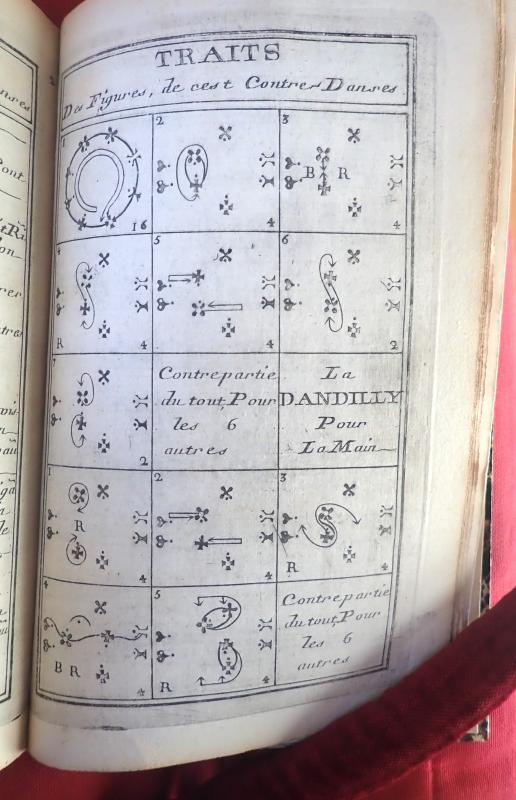 TRAITS
Des Figures, de cest Contre Danses
1
16
2
4
3
B R
4
4
R
4
5
4
6
2
7
2
Contrepartie
du tout, Pour
les 6
autres
La
DANDILLY
Pour
La Main
1
R
4
2
4
3
R
4
4
B R
4
5
R
4
Contrepartie
du tout, Pour
les 6
autres